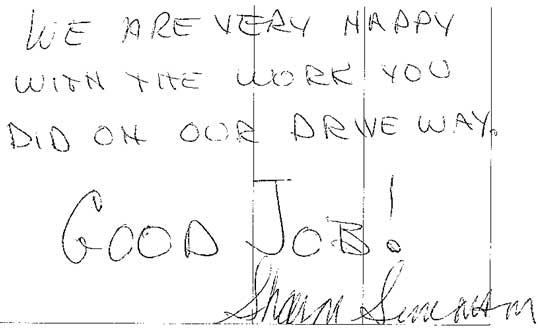 WE ARE VERY HAPPY
WITH THE WORK YOU
DID ON OUR DRIVEWAY.
GOOD JOB!
Sharon